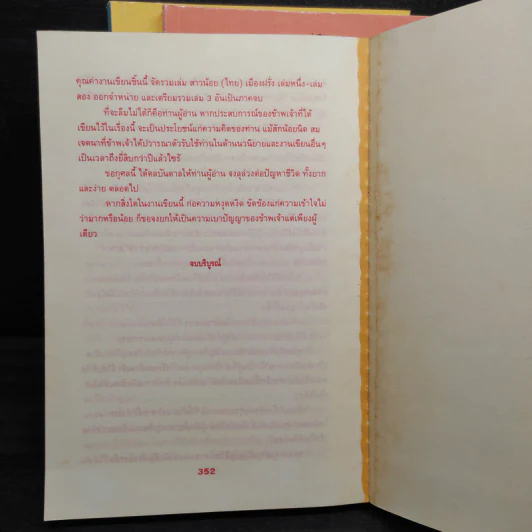 คุณค่างานเขียนชิ้นนี้ จัดรวมเล่ม สาวน้อย (ไทย) เมืองฝรั่ง เล่มหนึ่ง-เล่ม
สอง ออกจำหน่าย และเตรียมรวมเล่ม 3 อันเป็นภาคจบ
ที่จะลืมไม่ได้ก็คือท่านผู้อ่าน หากประสบการณ์ของข้าพเจ้าที่ได้
เขียนไว้ในเรื่องนี้ จะเป็นประโยชน์แก่ความคิดของท่าน แม้สักน้อยนิด สม
เจตนาที่ข้าพเจ้าได้ปวารณาตัวรับใช้ท่านในด้านนวนิยายและงานเขียนอื่นๆ
เป็นเวลาถึงยี่สิบกว่าปีแล้วไซร้
ขอกุศลนี้ ได้ดลบันดาลให้ท่านผู้อ่าน จงลุล่วงต่อปัญหาชีวิต ทั้งยาก
และง่าย ตลอดไป
หากสิ่งใดในงานเขียนนี้ ก่อความหงุดหงิด ขัดข้องแก่ความเข้าใจไม่
ว่ามากหรือน้อย ก็ขอจงยกให้เป็นความเบาปัญญาของข้าพเจ้าแต่เพียงผู้
เดียว
จบบริบูรณ์
352